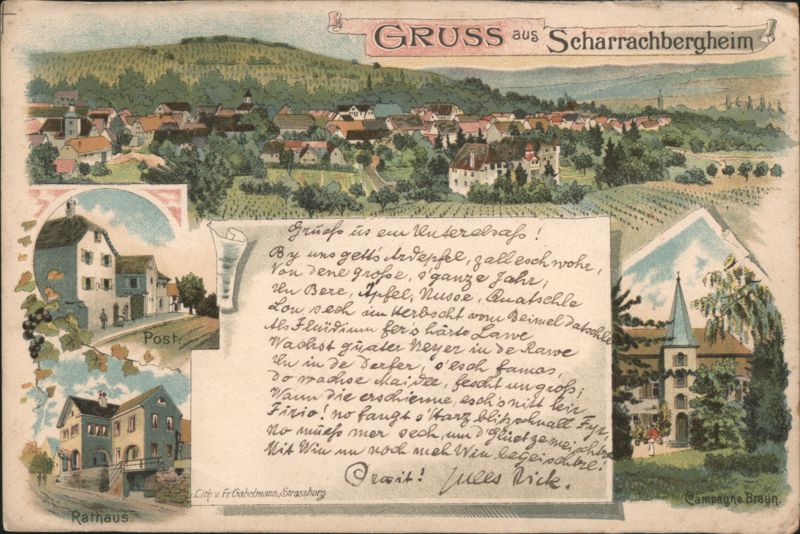 GRUSS aus Scharrachbergheim
Post.
Rathaus
Grüess üs em Unterelsass!
By uns getts Ardepfel, zall esch wohr,
Von dene grosse, s'ganze Jahr;
Un Bere, Äpfel, Nusse, Quatschle
Lon sech im Herbscht vom Beimel datschle
Als Fluidium fer's härte Lawe
Wachst güater Neyer in de Rawe
Un in de Derfer, s'esch famos,
Do wachse Maidle, fescht un gross;
Wann die erschiene, esch's nitt
no fangt s'Harz blitzschnall Fyr,
No müess mer sech, um d'
Mit Win un noch meh Win begeischtre!
Prosit! Jules Rick.
Lith. v. Fr. Gabelmann, Strassburg
Campagne Braun.